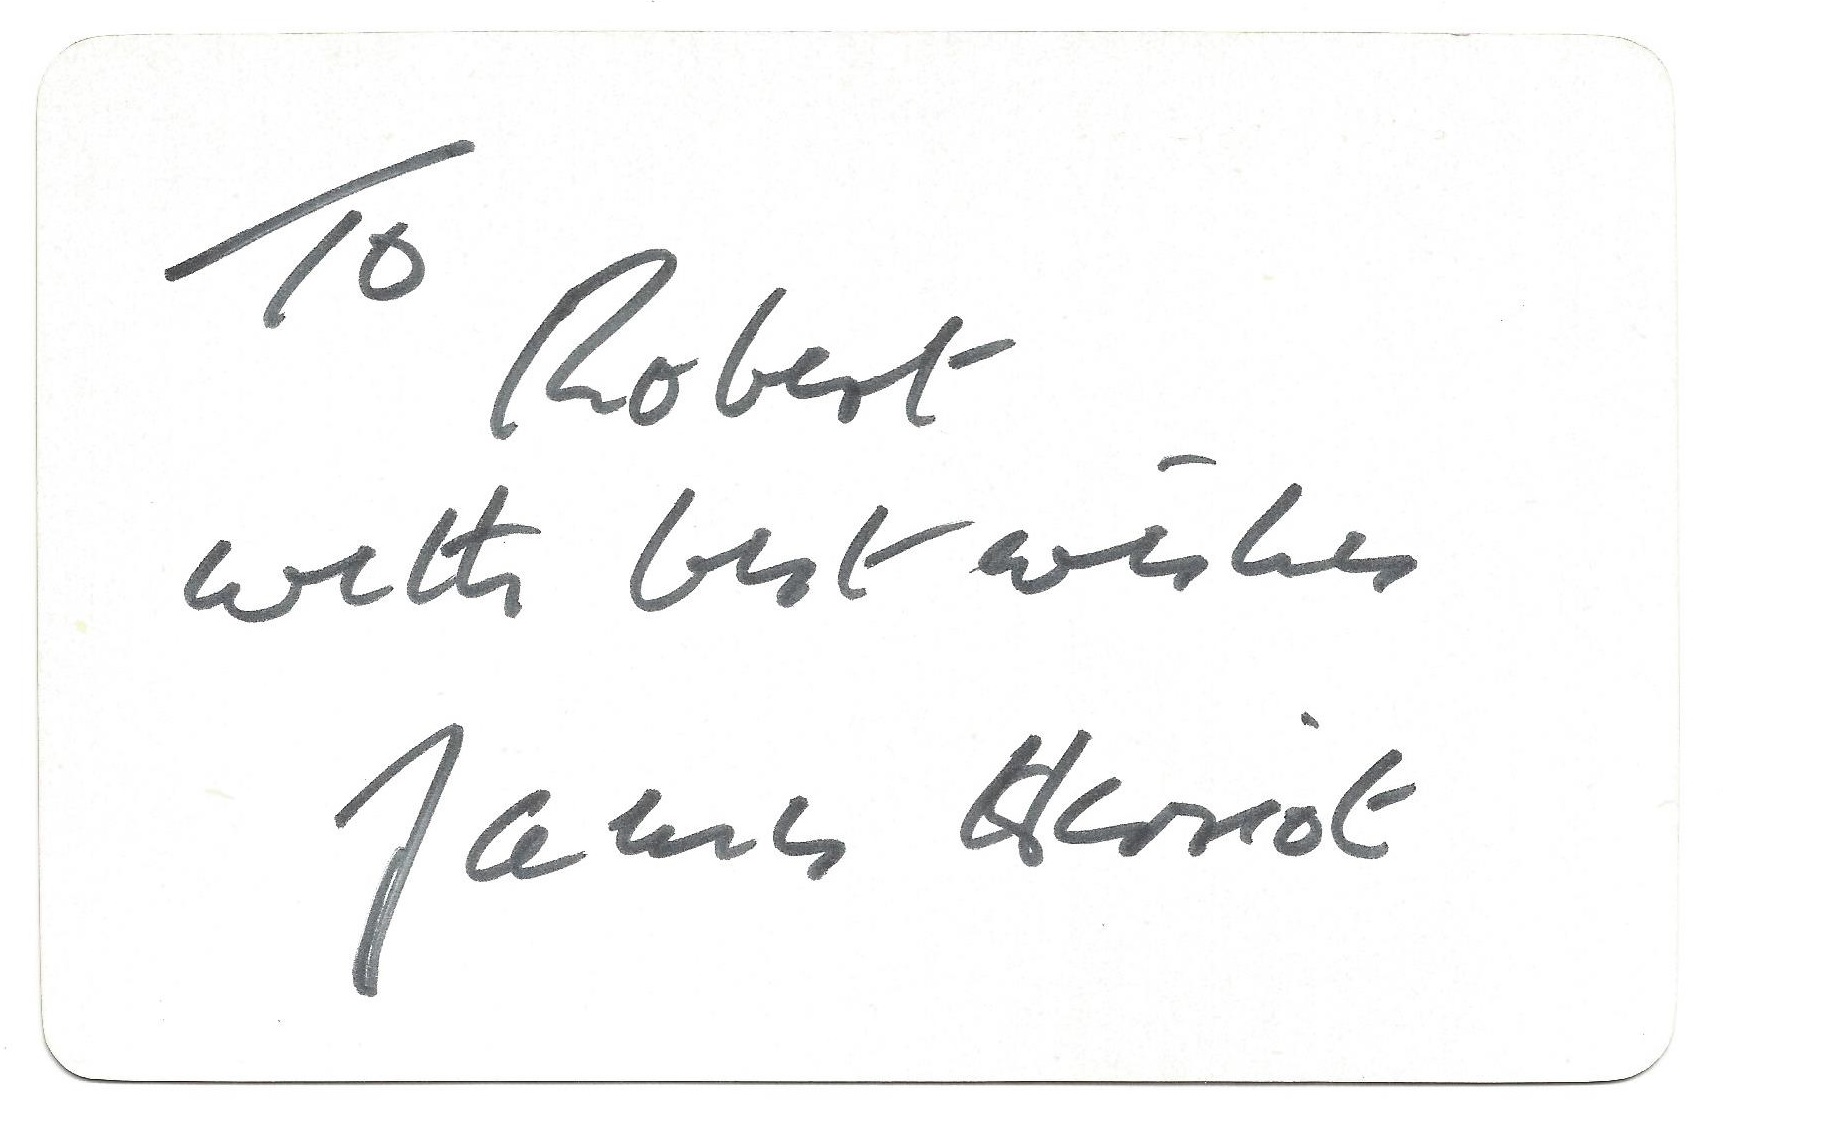 To
Robert
with best wishes
James Herriot